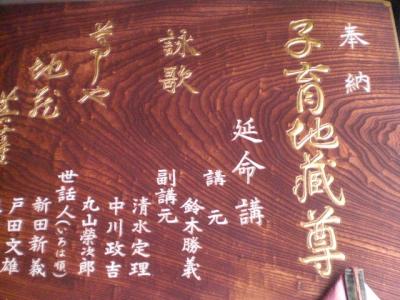 奉納
子育地蔵尊
延命講
講元
鈴木勝義
副講元
清水定理
中川政吉
丸山榮次郎
世話人(いろは順)
新田新義
戸田文雄
詠歌
地蔵